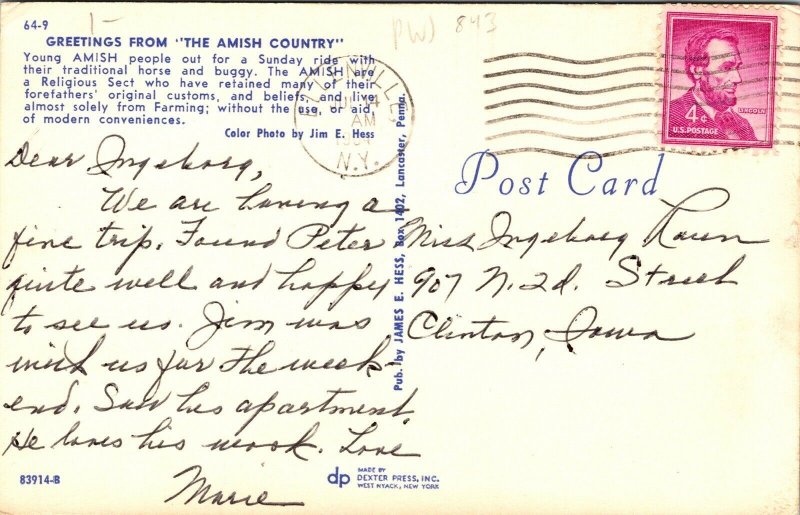 64-9
GREETINGS FROM "THE AMISH COUNTRY"
Young AMISH people out for a Sunday ride with
their traditional horse and buggy. The AMISH are
a Religious Sect who have retained many of their
forefathers' original customs, and beliefs, and live
almost solely from Farming; without the use, or aid,
of modern conveniences.
Color Photo by Jim E. Hess
PWJ 843
AM
N.Y.
4¢
LINCOLN
U.S. POSTAGE
Post Card
Dear Ingeborg,
We are having a
fine trip. Found Peter
quite well and happy
to see us. Jim was
with us for the week-
end. Saw his apartment.
He loves his work. Love
Marie
Pub. by JAMES E. HESS, Box 1402, Lancaster, Penna.
Miss Ingeborg
907 N. 2d. Street
Clinton, Iowa
83914-B
dp
MADE BY
DEXTER PRESS, INC.
WEST NYACK, NEW YORK